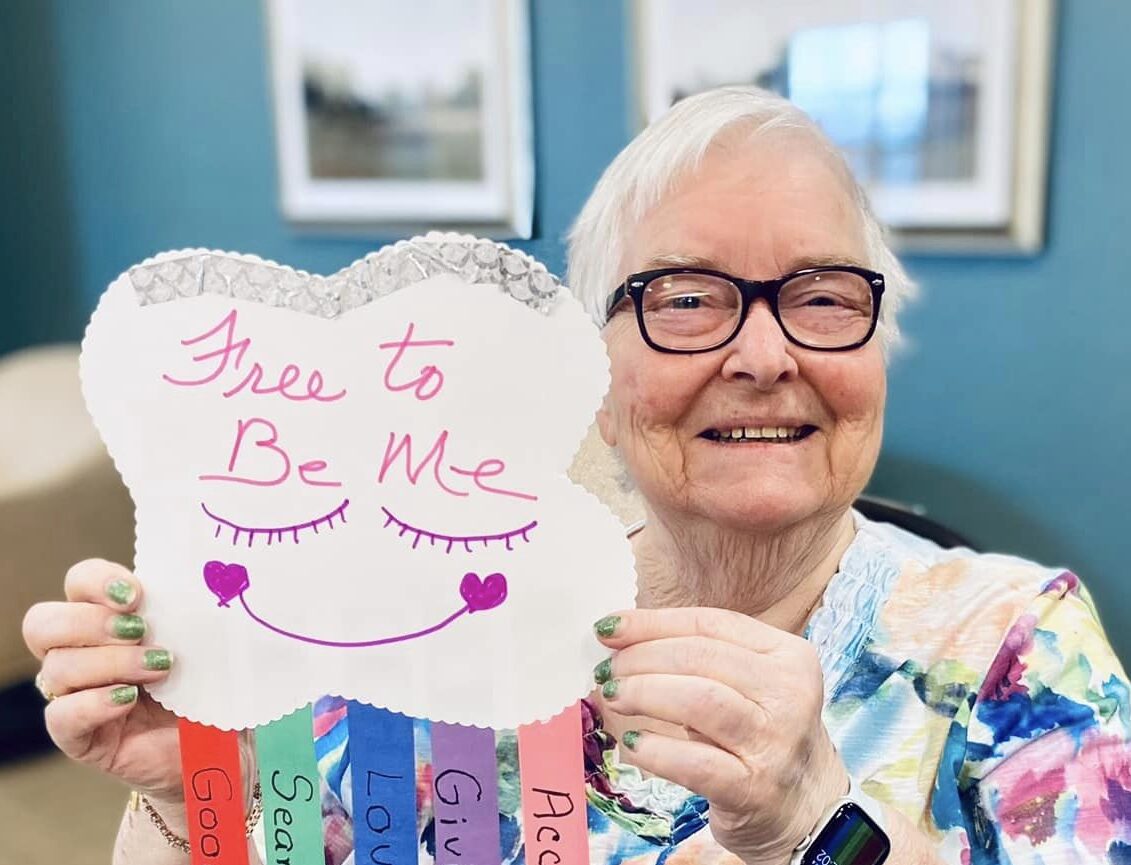 Free to
Be Me
Goo
Sear
Lov
Giv
Acc
:02